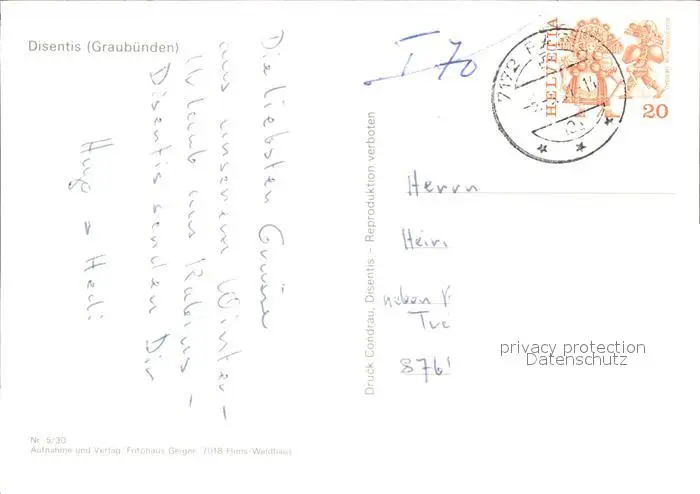 Disentis (Graubünden)
Die liebsten Grüsse
aus unserem Winter-
Urlaub aus Rabius-
Disentis senden Dir
Hugo + Hedi
Nr. 5/30
Aufnahme und Verlag: Fotohaus Geiger, 7018 Flims-Waldhaus
Druck Condrau, Disentis - Reproduktion verboten
T 70
7172
HELVETIA
20
Herrn
Heiri
neben
876
privacy protection
Datenschutz